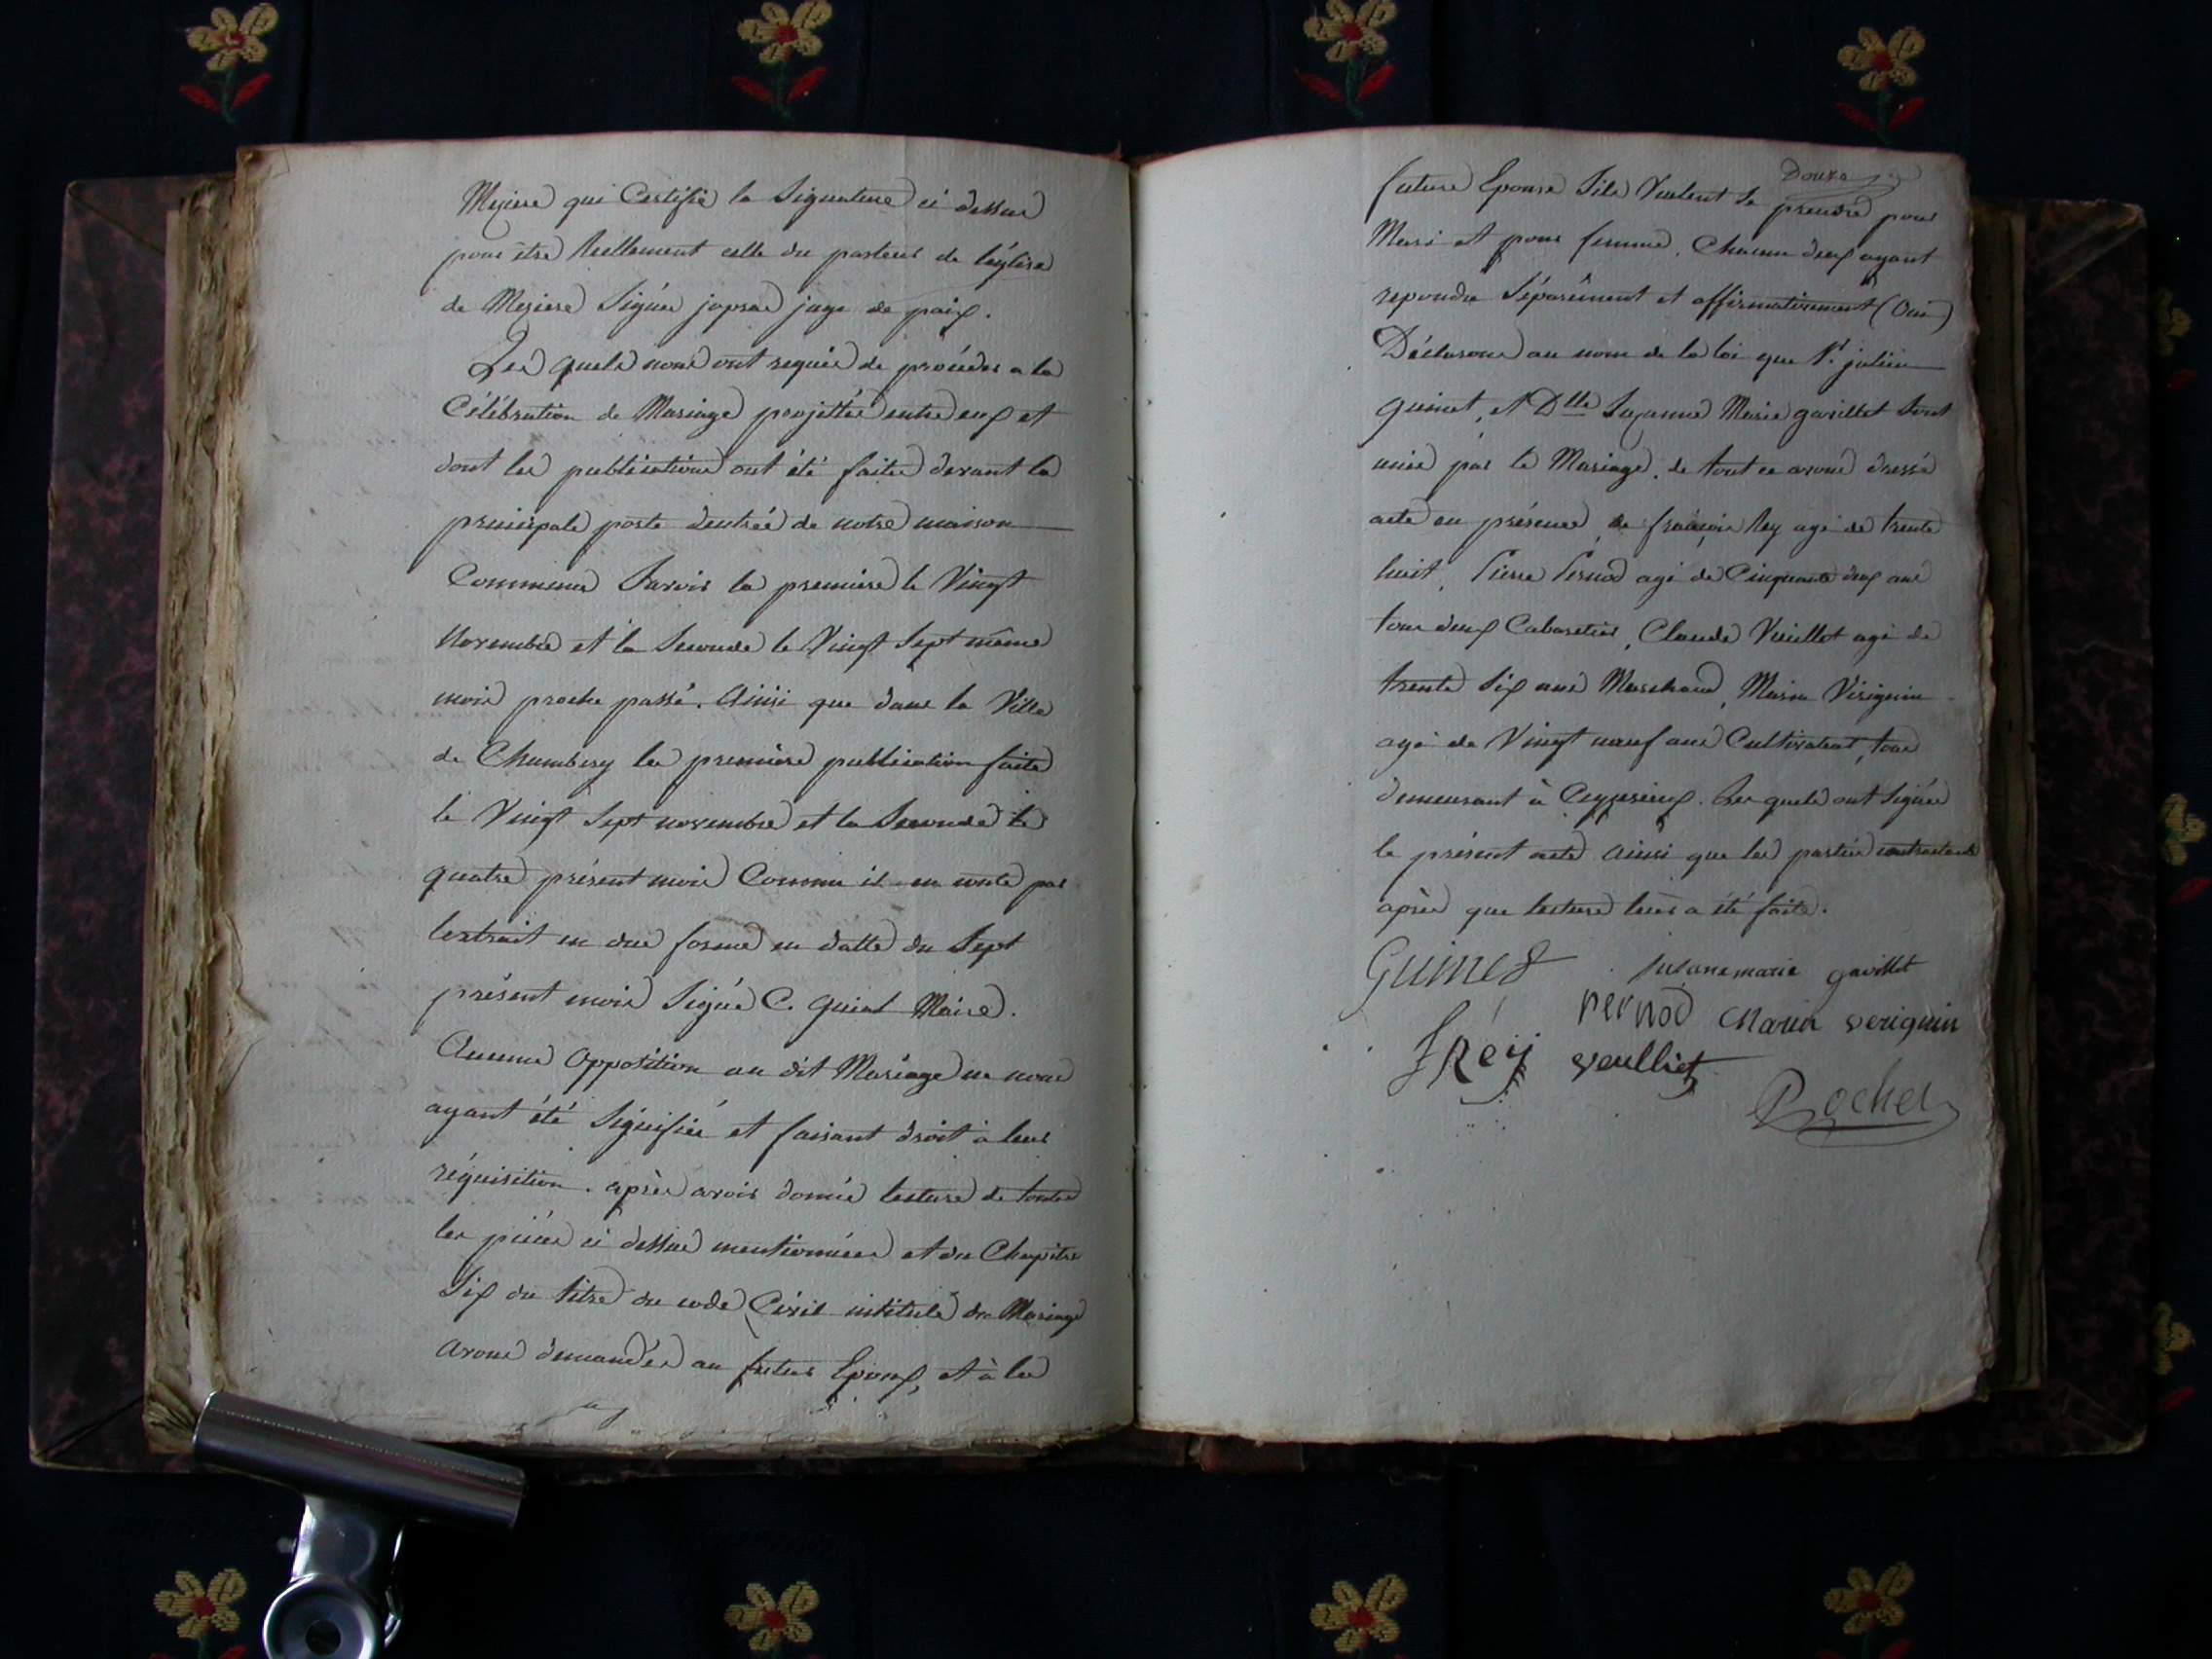 Meziere qui Certifie la Signature ci dessus
pour être Reellement celle du pasteur de l'église
de Meziere Signée juge de paix.
Les quels nous ont requis de procéder a la
Célébration de Mariage projettée entre eux et
dont les publications ont été faites devant la
principale porte dentrée de notre maison
Commune Savoir la premiere le Vingt
Novembre et la Seconde le Vingt Sept même
mois proche passé. Ainsi que dans la Ville
de Chambery la premiere publication faite
le Vingt Sept novembre et la Seconde le
quatre présent mois Comme il en conste par
lextrait en due forme en datte du Sept
présent mois Signé C. Maire.
Aucune Opposition au dit Mariage ne nous
ayant été Signifiée et faisant droit à leur
réquisition. après avoir donné lecture de toutes
les pièces ci dessus mentionnées et du Chapitre
Six du titre du code Civil intitulé du Mariage
avons demandés au futur Epoux, et à la
Douze
future Epouse Sils Veulent Se prendre pour
Mari et pour femme. Chacun deux ayant
repondu Séparément et affirmativement (Oui)
Déclarons au nom de la loi que Sr. julien
guinet, et Dlle Suzanne Marie gavillet Sont
unis par le Mariage. de tout ce avons dressé
acte en présence de françois Rey agé de trente
huit, Pierre Pernod agé de Cinquante deux ans
tous deux Cabaretier, Claude Veuillet agé de
trente Six ans Marchand, Marin Vériguin
agé de Vingt neuf ans Cultivateur, tous
demeurant à Ceyzerieux. Les quels ont Signés
le présent acte ainsi que les parties contractants
après que lecture leurs a été faite.
Guinet Susane marie gavillet
pernod Marin veriguin
f Rëÿ veulliet
Rochet